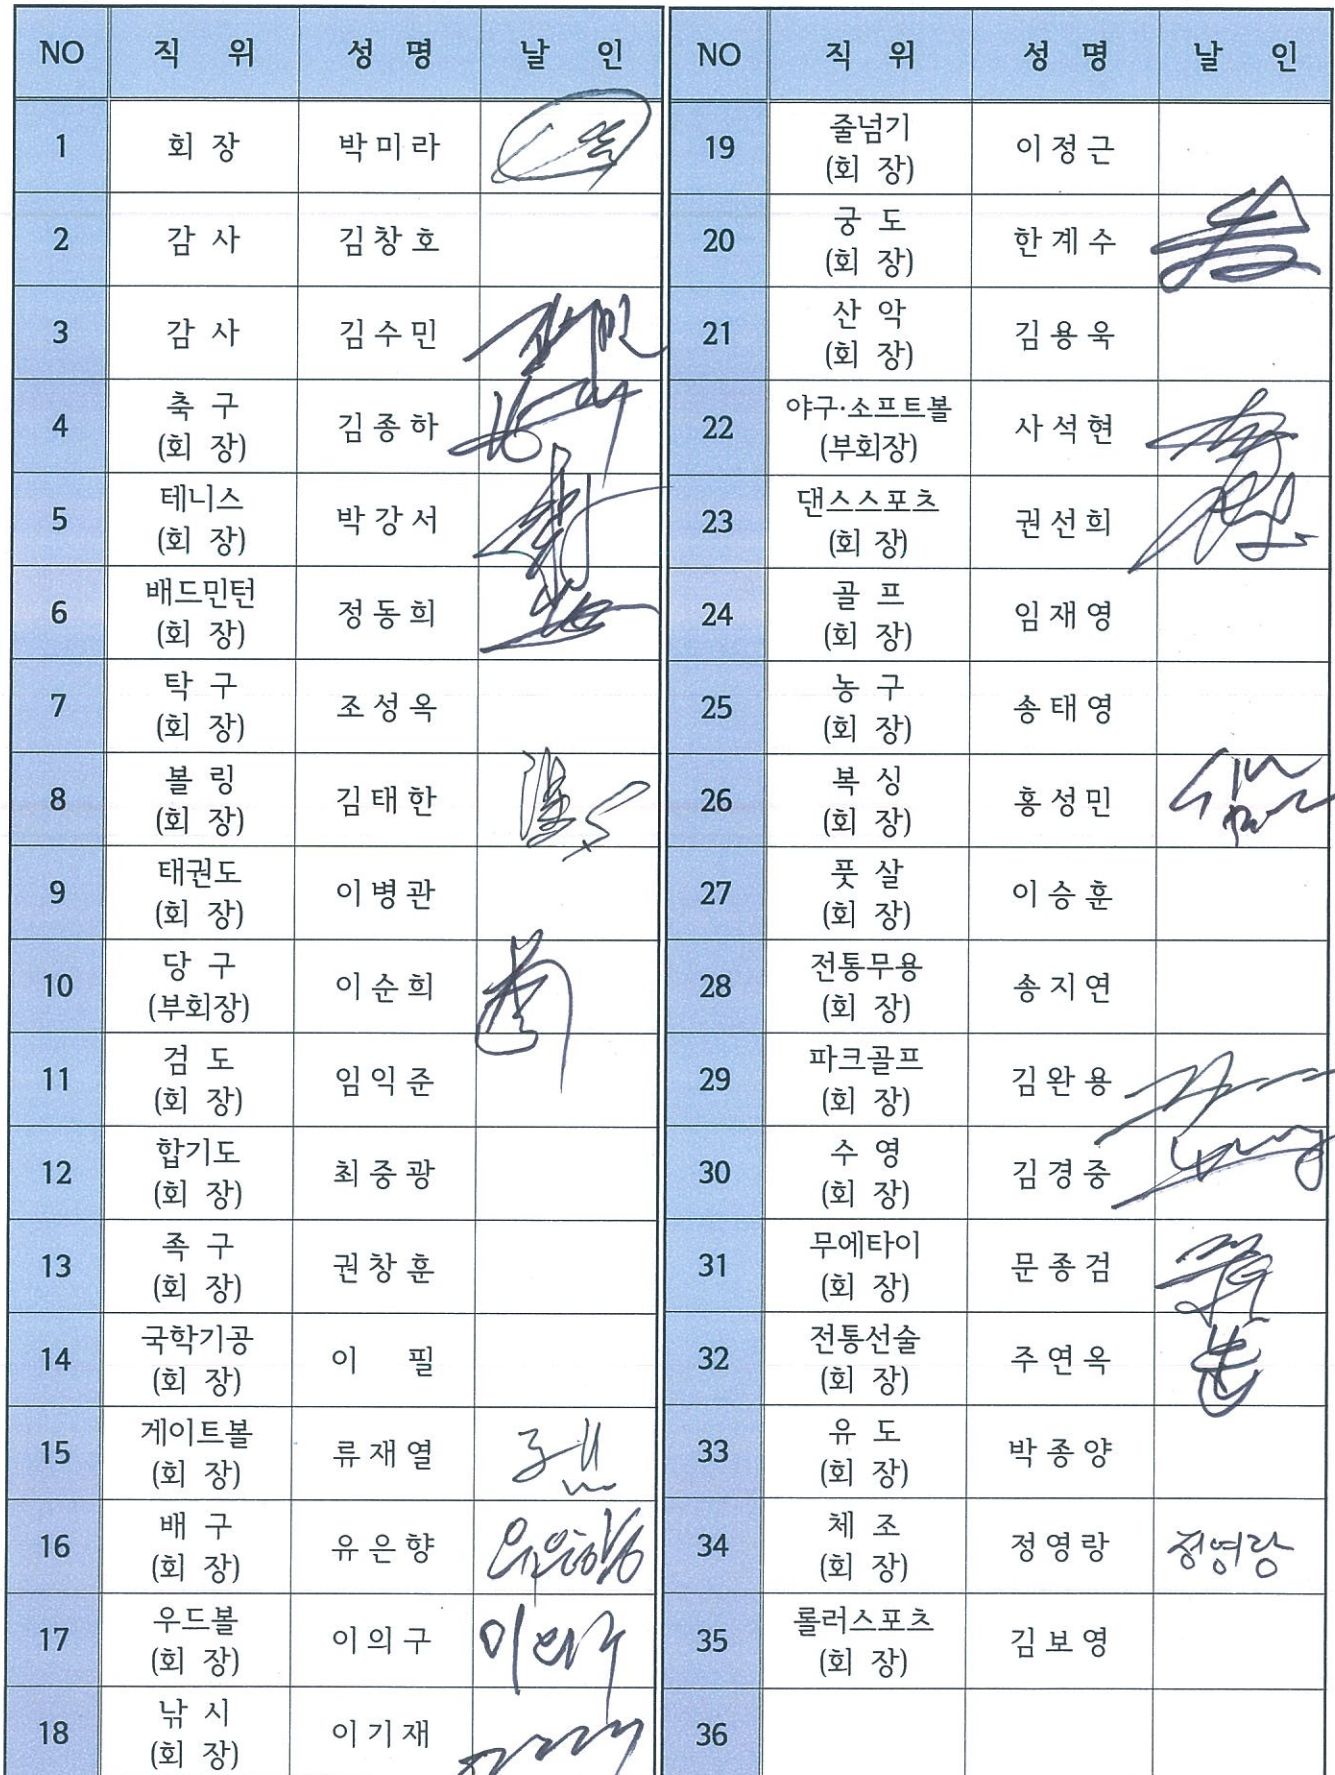 NO 직 위 성 명 날 인
1 회 장 박 미 라
2 감 사 김 창 호
3 감 사 김 수 민
4 축 구 (회 장) 김 종 하
5 테니스 (회 장) 박 강 서
6 배드민턴 (회 장) 정 동 희
7 탁 구 (회 장) 조 성 옥
8 볼 링 (회 장) 김 태 한
9 태권도 (회 장) 이 병 관
10 당 구 (부회장) 이 순 희
11 검 도 (회 장) 임 익 준
12 합기도 (회 장) 최 중 광
13 족 구 (회 장) 권 창 훈
14 국학기공 (회 장) 이 필
15 게이트볼 (회 장) 류 재 열
16 배 구 (회 장) 유 은 향 유은향
17 우드볼 (회 장) 이 의 구 이의구
18 낚 시 (회 장) 이 기 재
NO 직 위 성 명 날 인
19 줄넘기 (회 장) 이 정 근
20 궁 도 (회 장) 한 계 수
21 산 악 (회 장) 김 용 욱
22 야구·소프트볼 (부회장) 사 석 현
23 댄스스포츠 (회 장) 권 선 희
24 골 프 (회 장) 임 재 영
25 농 구 (회 장) 송 태 영
26 복 싱 (회 장) 홍 성 민
27 풋 살 (회 장) 이 승 훈
28 전통무용 (회 장) 송 지 연
29 파크골프 (회 장) 김 완 용
30 수 영 (회 장) 김 경 중
31 무에타이 (회 장) 문 종 검
32 전통선술 (회 장) 주 연 옥
33 유 도 (회 장) 박 종 양
34 체 조 (회 장) 정 영 랑 정영랑
35 롤러스포츠 (회 장) 김 보 영
36